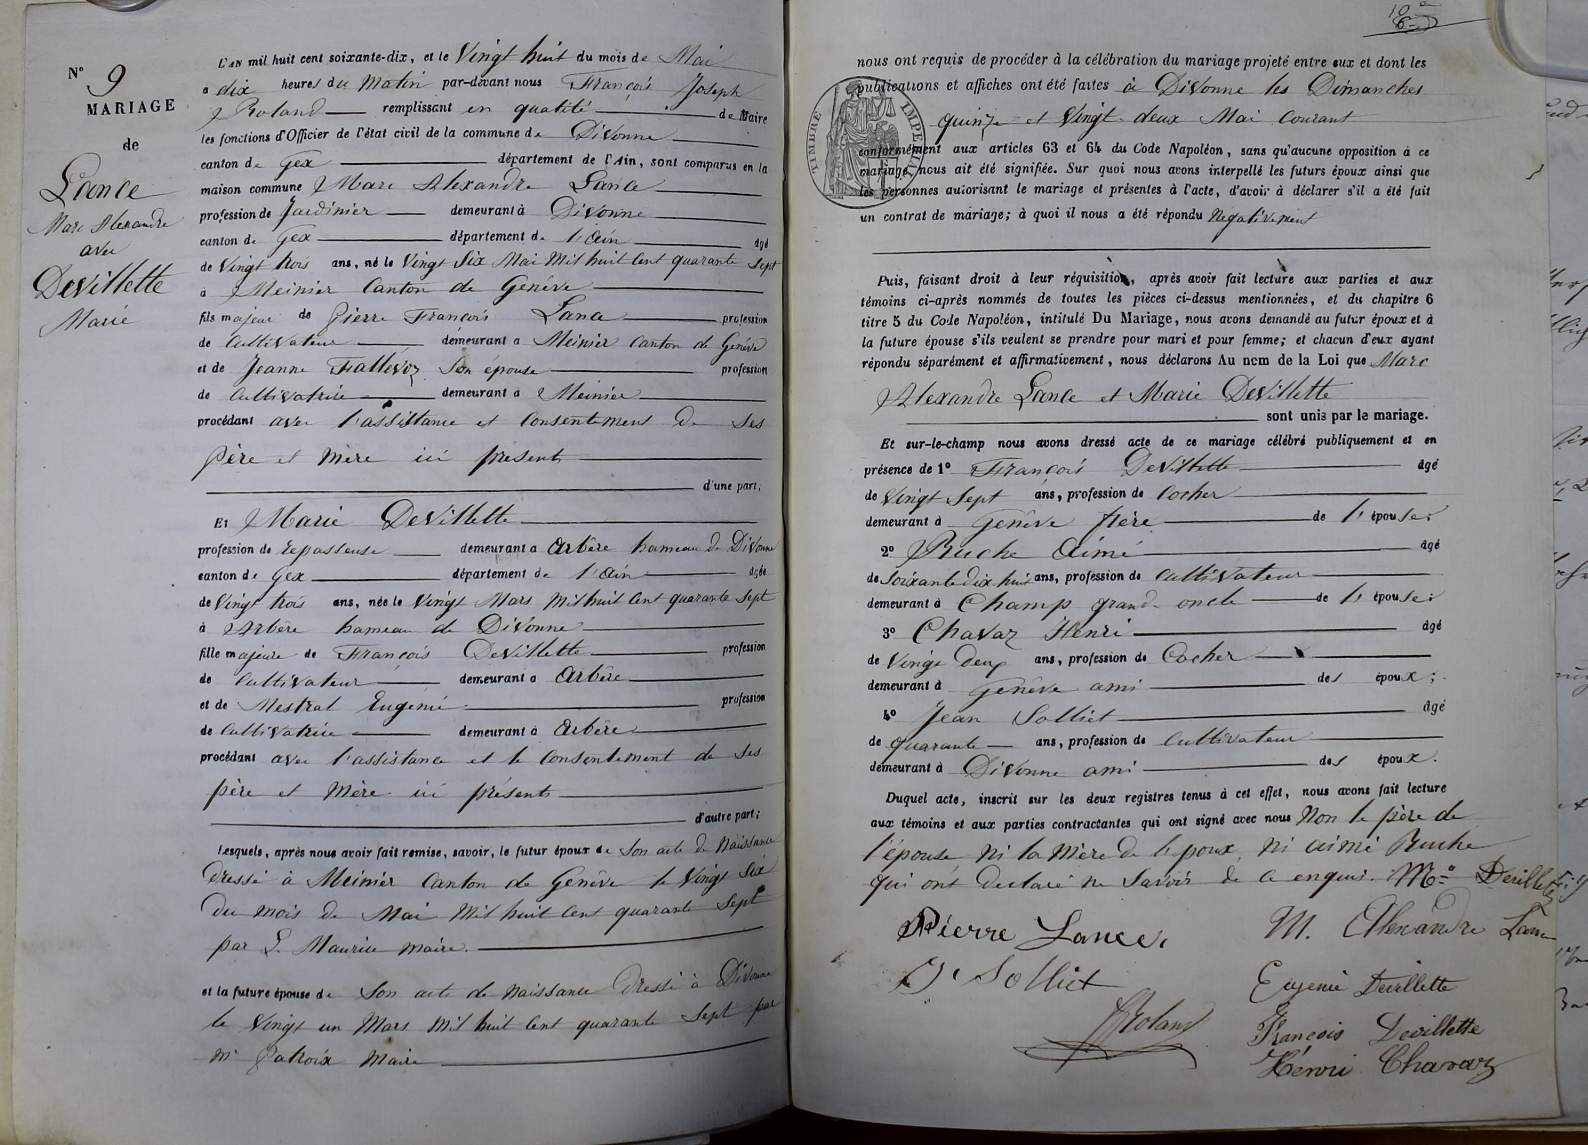 N° 9
MARIAGE
de
Lance
Marc Alexandre
avec
Devillette
Marie
L'an mil huit cent soixante-dix, et le Vingt huit du mois de Mai
à dix heures du Matin par-devant nous François Joseph
Roland remplissant en qualité de Maire
les fonctions d'Officier de l'état civil de la commune de Divonne
canton de Gex département de l'Ain, sont comparus en la
maison commune Marc Alexandre Lance
profession de Jardinier demeurant à Divonne
canton de Gex département de l'Ain âgé
de Vingt trois ans, né le Vingt Six Mai Mil huit Cent quarante Sept
à Meinier Canton de Genève
fils majeur de Pierre François Lance profession
de Cultivateur demeurant à Meinier Canton de Genève
et de Jeanne Son épouse profession
de Cultivatrice demeurant à Meinier
procédant avec l'assistance et Consentement de Ses
père et Mère ici présents
d'une part;
Et Marie Devillette
profession de repasseuse demeurant à Arbère hameau de Divonne
canton de Gex département de l'Ain âgée
de Vingt trois ans, née le Vingt Mars Mil huit Cent quarante Sept
à Arbère hameau de Divonne
fille majeure de François Devillette profession
de Cultivateur demeurant à Arbère
et de Mestral Eugénie profession
de Cultivatrice demeurant à Arbère
procédant avec l'assistance et le Consentement de Ses
père et Mère ici présents
d'autre part;
Lesquels, après nous avoir fait remise, savoir, le futur époux de Son acte de Naissance
dressé à Meinier Canton de Genève le Vingt Six
du mois de Mai Mil huit Cent quarante Sept
par L. Maurice maire.
et la future épouse de Son acte de Naissance dressé à Divonne
le Vingt un Mars Mil huit Cent quarante Sept par
Mr Maire
nous ont requis de procéder à la célébration du mariage projeté entre eux et dont les
publications et affiches ont été faites à Divonne les Dimanches
quinze et Vingt deux Mai Courant
TIMBRE IMPERIAL
conformément aux articles 63 et 64 du Code Napoléon, sans qu'aucune opposition à ce
mariage nous ait été signifiée. Sur quoi nous avons interpellé les futurs époux ainsi que
les personnes autorisant le mariage et présentes à l'acte, d'avoir à déclarer s'il a été fait
un contrat de mariage; à quoi il nous a été répondu Négativement
Puis, faisant droit à leur réquisition, après avoir fait lecture aux parties et aux
témoins ci-après nommés de toutes les pièces ci-dessus mentionnées, et du chapitre 6
titre 5 du Code Napoléon, intitulé Du Mariage, nous avons demandé au futur époux et à
la future épouse s'ils veulent se prendre pour mari et pour femme; et chacun d'eux ayant
répondu séparément et affirmativement, nous déclarons Au nom de la Loi que Marc
Alexandre Lance et Marie Devillette
sont unis par le mariage.
Et sur-le-champ nous avons dressé acte de ce mariage célébré publiquement et en
présence de 1° François Devillette âgé
de Vingt Sept ans, profession de Cocher
demeurant à Genève frère de l'épouse;
2° Ruche Aimé âgé
de Soixante dix huit ans, profession de Cultivateur
demeurant à Champ grand-oncle de l'épouse;
3° Chavaz Henri âgé
de Vingt Deux ans, profession de Cocher
demeurant à Genève ami des époux;
4° Jean Solliet âgé
de quarante ans, profession de Cultivateur
demeurant à Divonne ami des époux.
Duquel acte, inscrit sur les deux registres tenus à cet effet, nous avons fait lecture
aux témoins et aux parties contractantes qui ont signé avec nous Non le père de
l'épouse Ni la Mère de l'époux, Ni Aimé Ruche
qui ont déclaré ne Savoir de ce enquis. Mie Devillette
Pierre Lance. M. Alexandre Lance
J. Solliet Eugénie Devillette
Roland François Devillette
Henri Chavaz